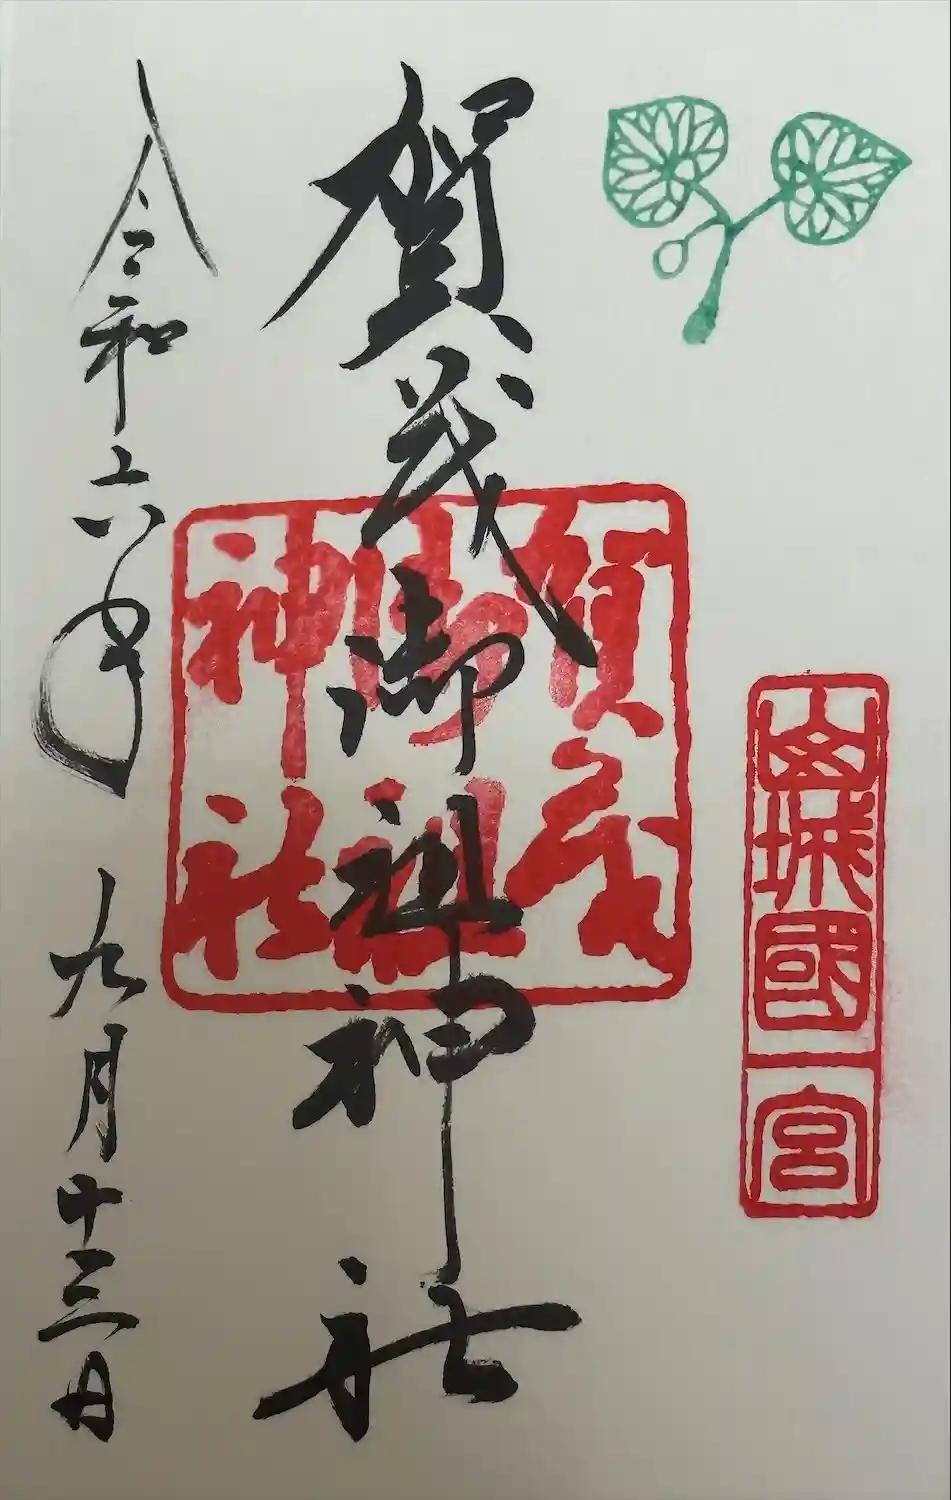 山城國一宮
賀茂御祖神社
賀茂
御祖
神社
令和六年九月十三日